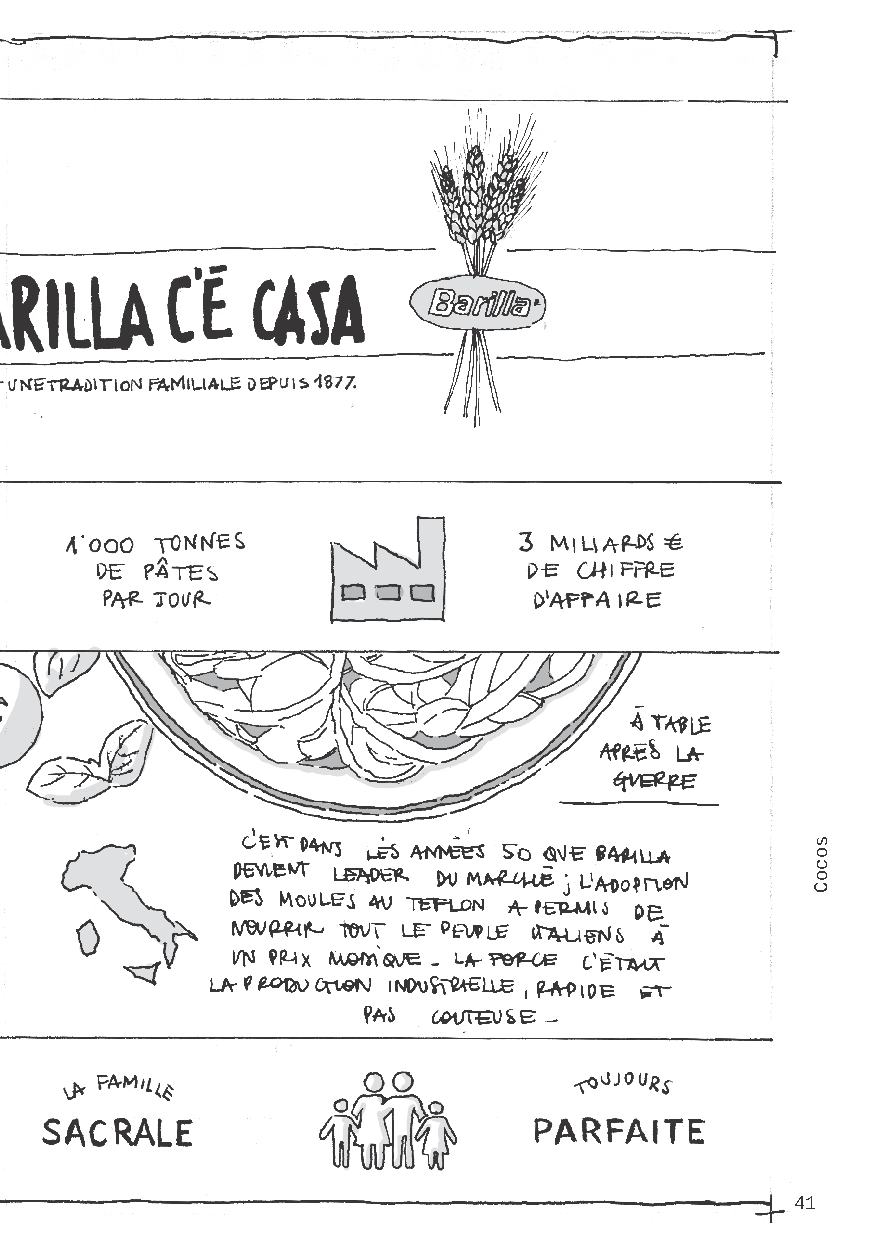 ARILLA C'È CASA
Barilla
UNE TRADITION FAMILIALE DEPUIS 1877.
1'000 TONNES
DE PÂTES
PAR JOUR
3 MILIARDS €
DE CHIFFRE
D'AFFAIRE
À TABLE
APRÈS LA
GUERRE
C'EST DANS LES ANNÉES 50 QUE BARILLA
DEVIENT LEADER DU MARCHÉ ; L'ADOPTION
DES MOULES AU TEFLON A PERMIS DE
NOURRIR TOUT LE PEUPLE ITALIENS À
UN PRIX MODIQUE - LA FORCE C'ÉTAIT
LA PRODUCTION INDUSTRIELLE, RAPIDE ET
PAS COUTEUSE -
Cocos
LA FAMILLE
SACRALE
TOUJOURS
PARFAITE
41